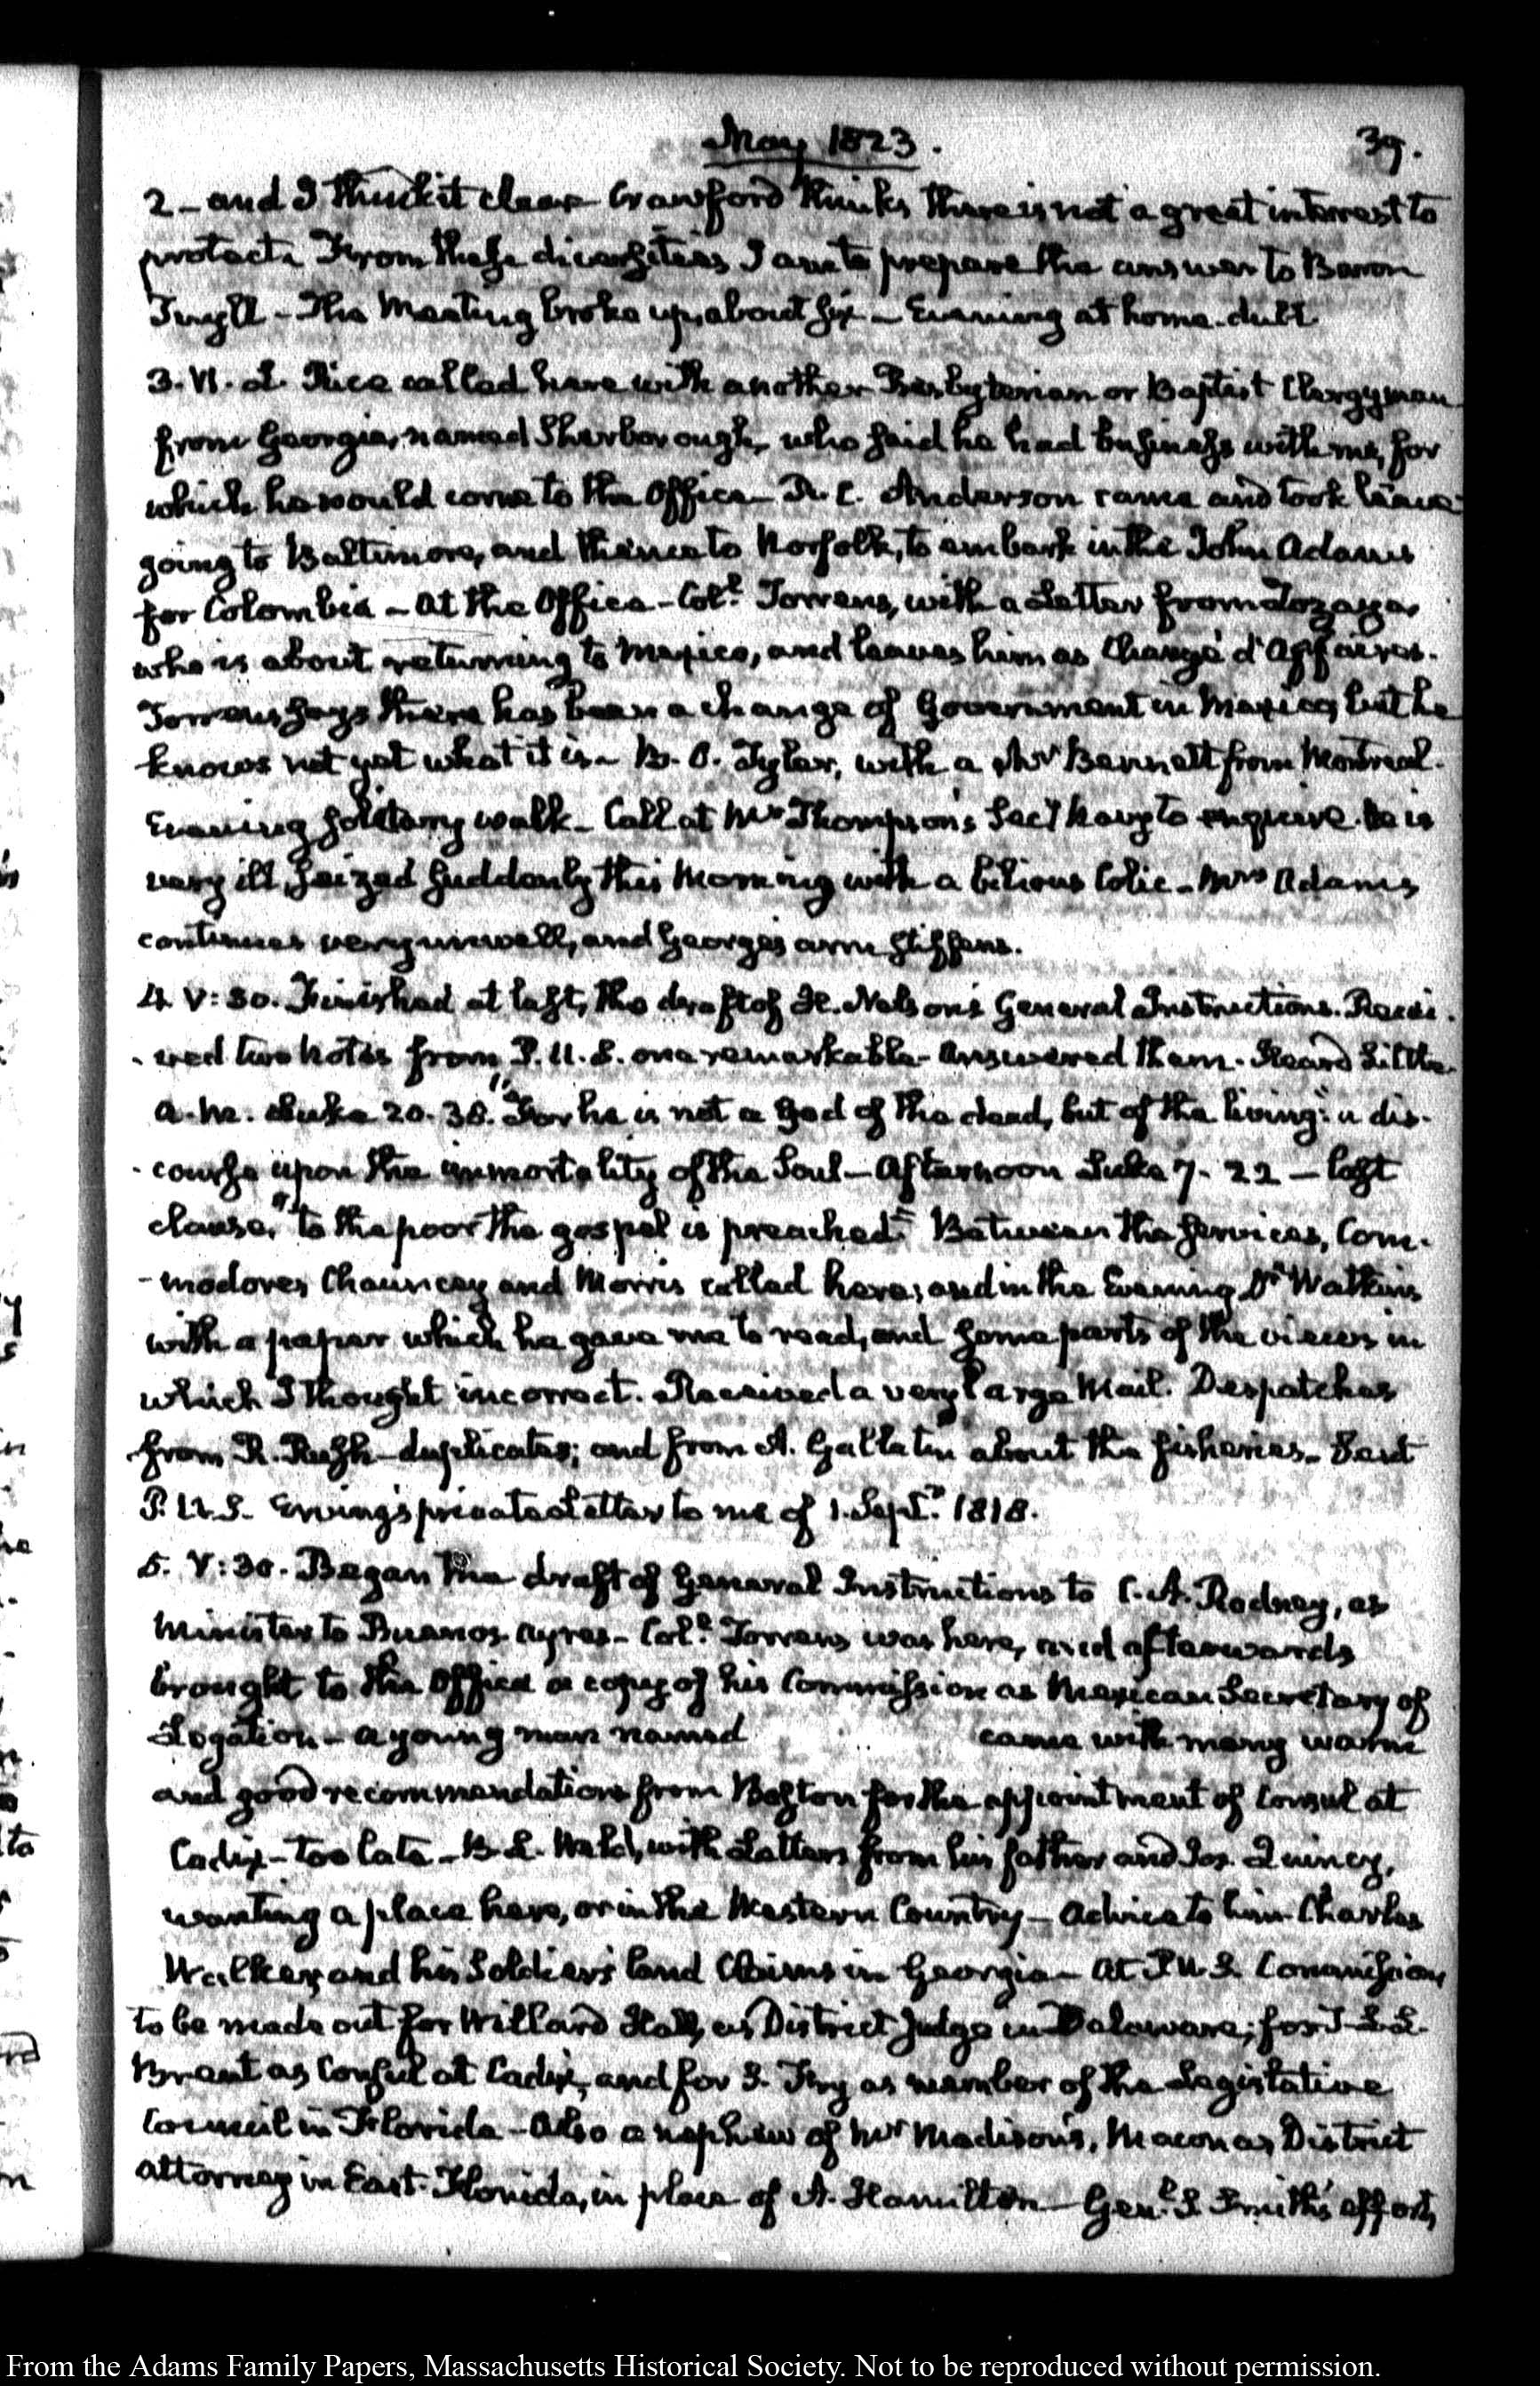 May 1823.
39.
2 - and I think it clear Crawford thinks there is not a great interest to
protect. From these diversities I am to prepare the answer to Baron
Tuyll - The Meeting broke up, about six - Evening at home. dull.
3. VI. L. Rice called here with another Presbyterian or Baptist Clergyman
from Georgia, named Sherborough, who said he had business with me, for
which he would come to the Office - R. C. Anderson came and took leave
going to Baltimore, and thence to Norfolk, to embark in the John Adams
for Colombia - At the Office - Coll. Torrens, with a Letter from Zozaya,
who is about returning to Mexico, and leaves him as Chargé d'Affaires.
Torrens says there has been a change of Government in Mexico, but he
knows not yet what it is - B. O. Tyler, with a Mr Bennett from Montreal.
Evening solitary walk - Call at Mr Thompson's Secy Navy to enquire. He is
very ill, seized suddenly this Morning with a bilious Colic - Mrs Adams
continues very unwell, and George's arm stiffens.
4. V:30. Finished at last, the draft of H. Nelson's General Instructions. Recei-
-ved two Notes from P.U.S. one remarkable - Answered them. Heard Little.
A.M. Luke 20. 38. "For he is not a God of the dead, but of the living": a dis-
-course upon the immortality of the Soul - Afternoon Luke 7. 22 - last
clause, "to the poor the gospel is preached" Between the services, Com-
-modores Chauncey and Morris called here; and in the Evening Dr Watkins
with a paper which he gave me to read, and some parts of the views in
which I thought incorrect. Received a very large Mail. Despatches
from R. Rush - duplicates; and from A. Gallatin about the fisheries. Sent
P.U.S. Erving's private Letter to me of 1. Septr. 1818.
5. V:30. Began the draft of General Instructions to C. A. Rodney, as
Minister to Buenos Ayres - Coll. Torrens was here, and afterwards
brought to the Office a copy of his Commission as Mexican Secretary of
Legation - A young man named came with many warm
and good recommendations from Boston for the appointment of Consul at
Cadix - too late - B. L. Weld, with Letters from his father and Jos. Quincy,
wanting a place here, or in the Western Country - Advice to him. Charles
Walker, and his Soldiers' land Claims in Georgia - At P.U.S. Commissions
to be made out for Willard Hall, as District Judge in Delaware; for T. L. L.
Brent as Consul at Cadix, and for S. Fry as member of the Legislative
Council in Florida - Also a nephew of Mr Madison's, Macon as District
Attorney in East-Florida, in place of A. Hamilton - Genl. S. Smith's efforts,
From the Adams Family Papers, Massachusetts Historical Society. Not to be reproduced without permission.